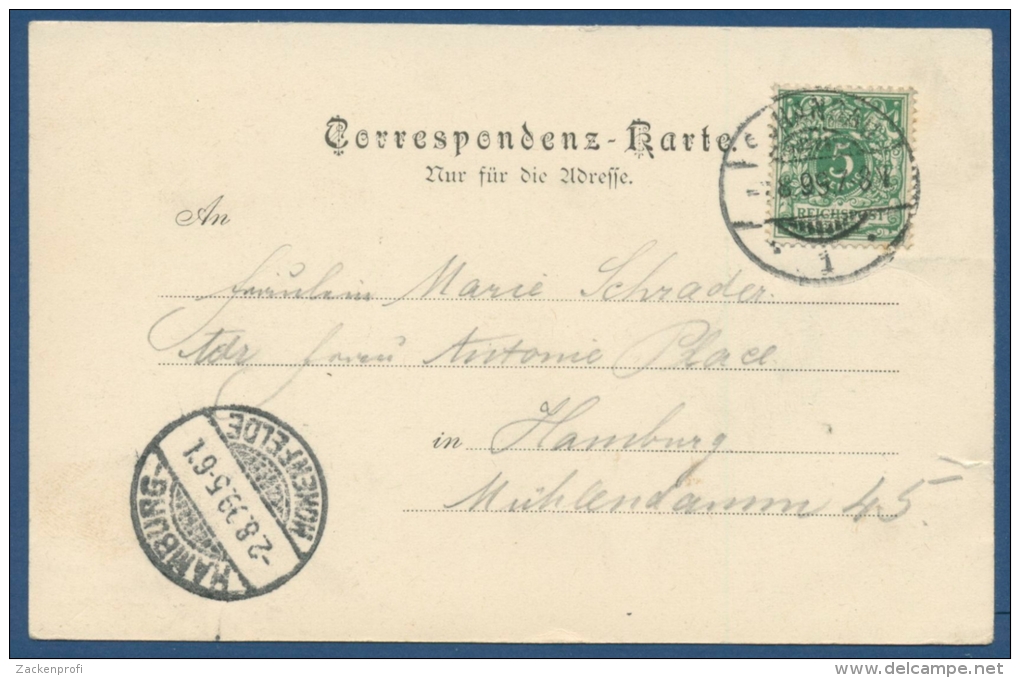 Correspondenz-Karte.
Nur für die Adresse.
5
REICHSPOST
1
An
Fräulein Marie Schrader.
Adr Frau Antonie Place
in Hamburg
Mühlendamm 45
HAMBURG-
-2.8.99.5-6N.
HOHENFELDE
Zackenprofi
delcampe.net